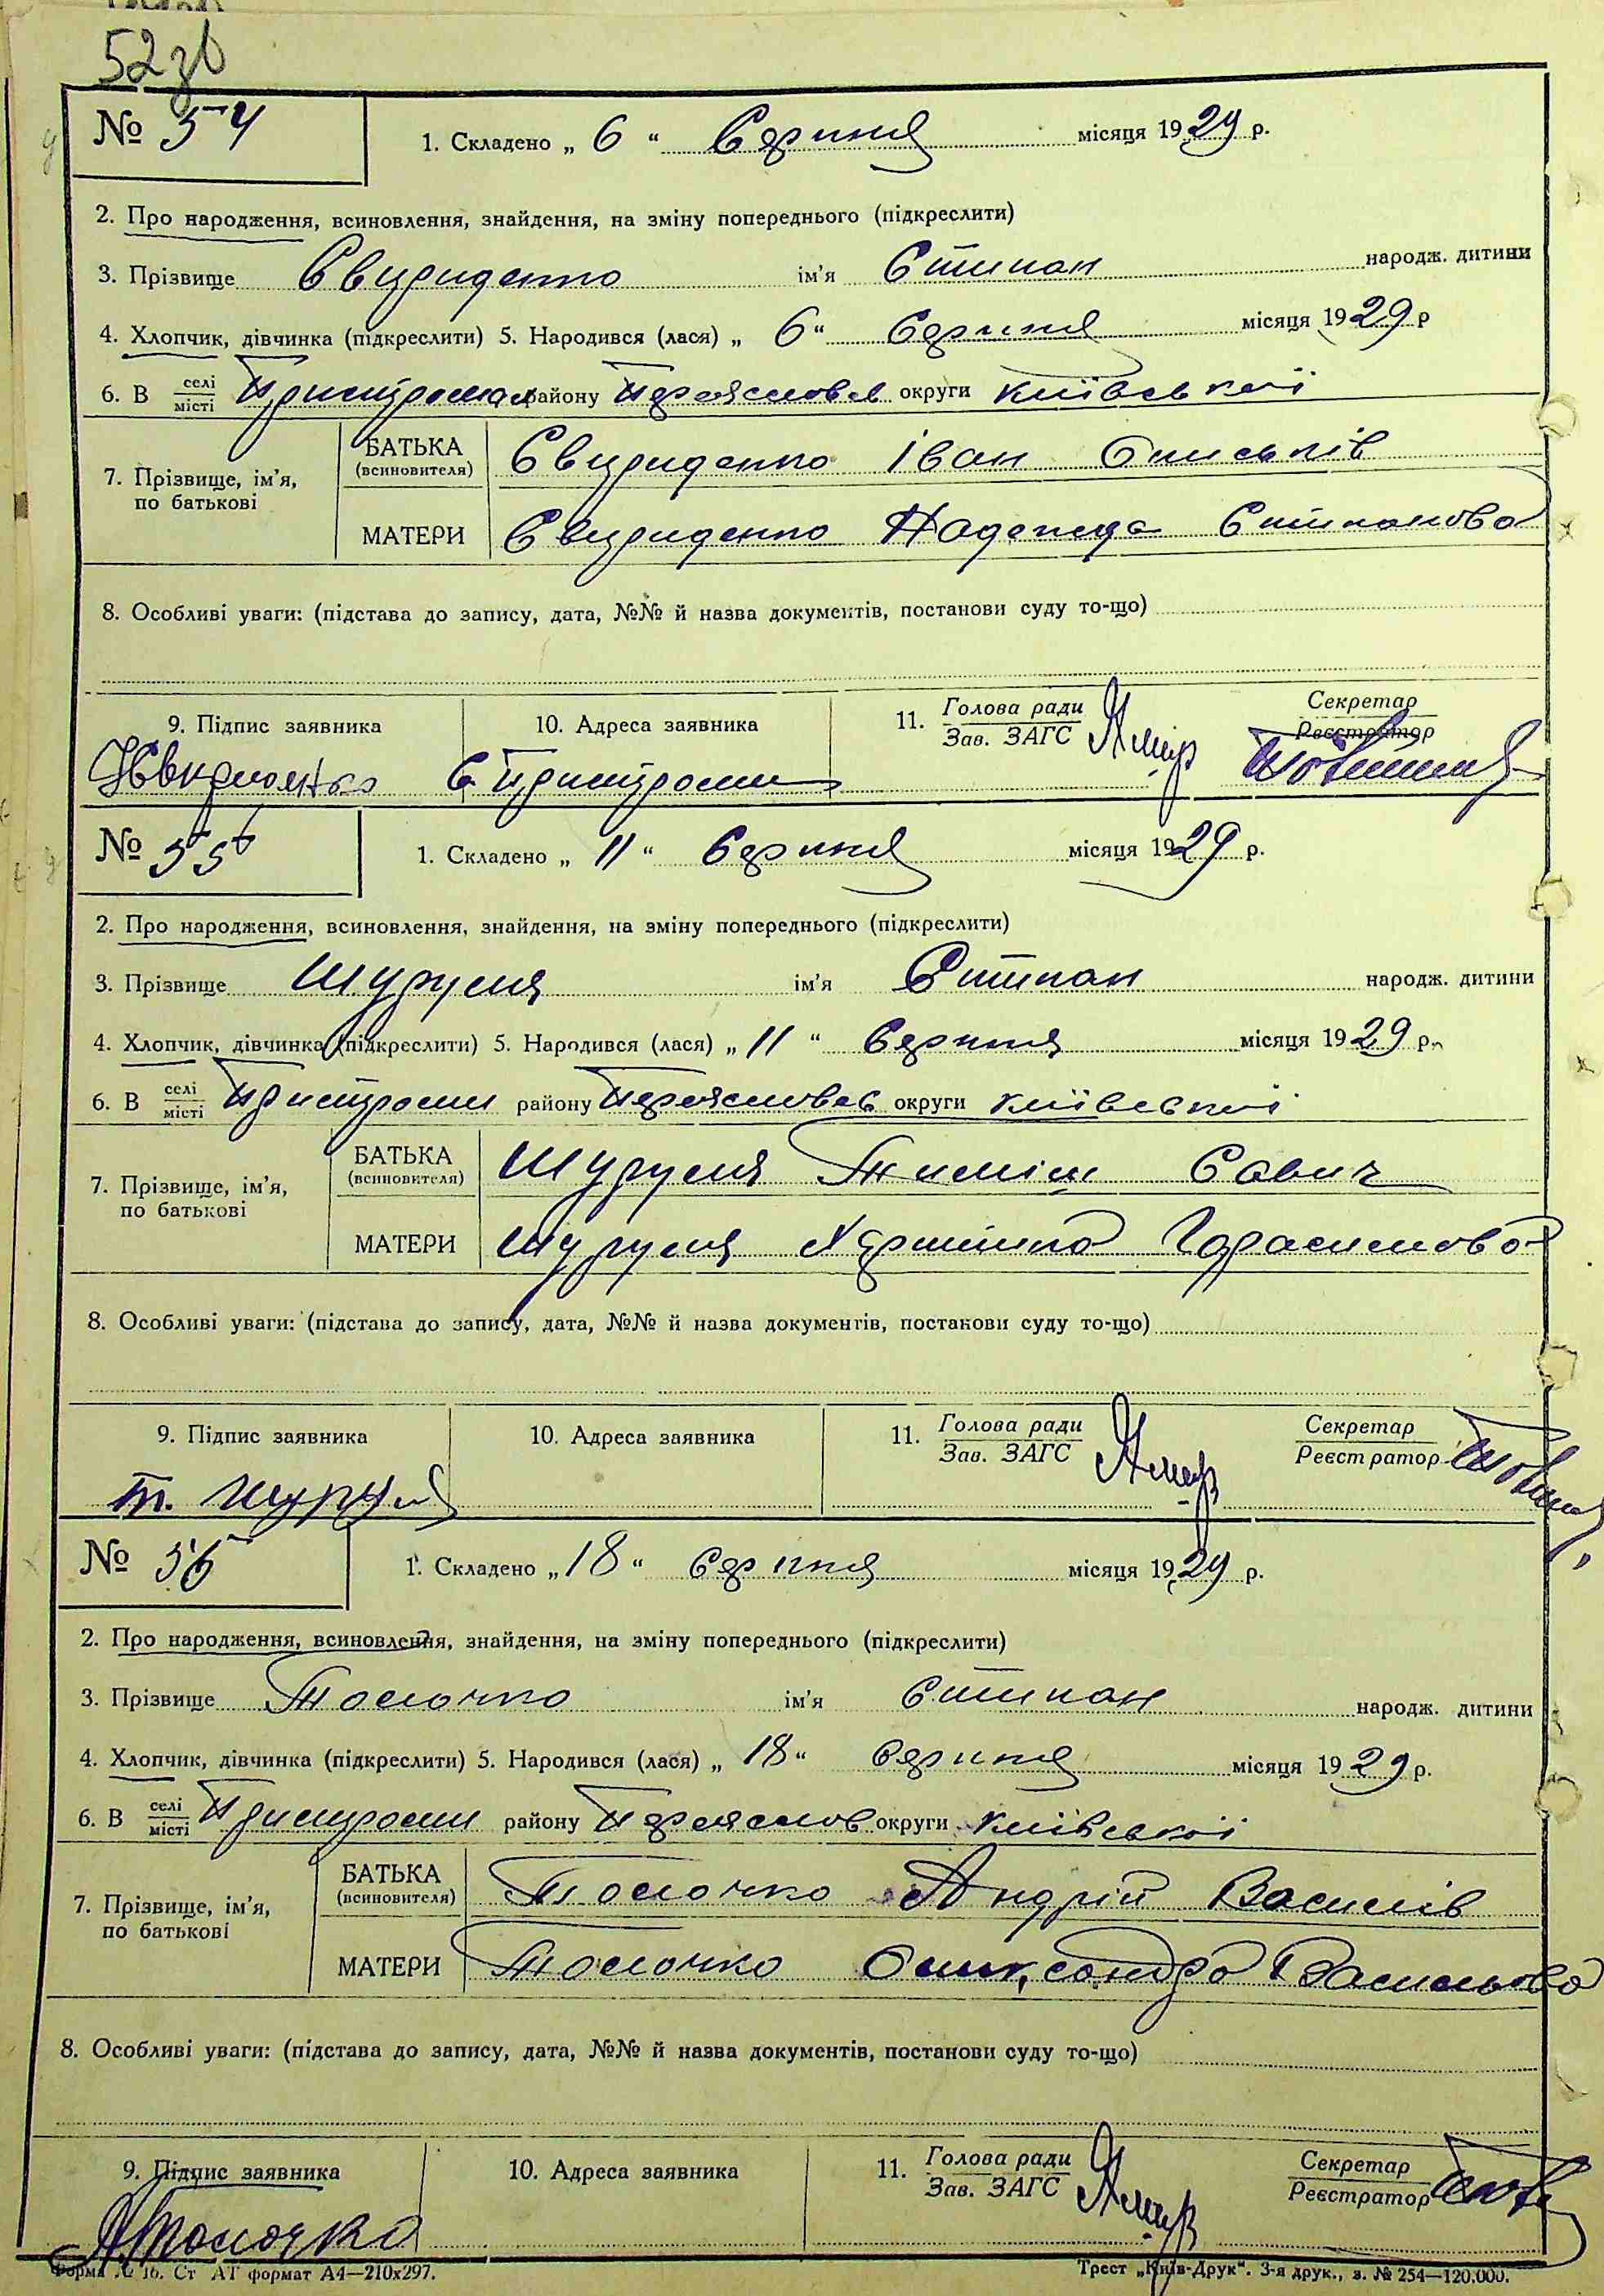 52 зв
№ 54
1. Складено „ 6 “ Серпня місяця 1929 р.
2. Про народження, всиновлення, знайдення, на зміну попереднього (підкреслити)
3. Прізвище Свириденко ім’я Степан народж. дитини
4. Хлопчик, дівчинка (підкреслити) 5. Народився (лася) „ 6 “ Серпня місяця 1929 р
6. В селі/місті Пристромах району Переяславсь округи Київської
7. Прізвище, ім’я, по батькові
БАТЬКА (всиновителя) Свириденко Іван Ониськів
МАТЕРИ Свириденко Надежда Степанова
8. Особливі уваги: (підстава до запису, дата, №№ й назва документів, постанови суду то-що)
9. Підпис заявника 10. Адреса заявника 11. Голова ради/Зав. ЗАГС Секретар/Реєстратор
с Пристроми
№ 55
1. Складено „ 11 “ Серпня місяця 1929 р.
2. Про народження, всиновлення, знайдення, на зміну попереднього (підкреслити)
3. Прізвище Шуруля ім’я Степан народж. дитини
4. Хлопчик, дівчинка (підкреслити) 5. Народився (лася) „ 11 “ Серпня місяця 1929 р.
6. В селі/місті Пристроми району Переяславсь округи Київської
7. Прізвище, ім’я, по батькові
БАТЬКА (всиновителя) Шуруля Тиміш Савич
МАТЕРИ Шуруля Гарасимова
8. Особливі уваги: (підстава до запису, дата, №№ й назва документів, постанови суду то-що)
9. Підпис заявника 10. Адреса заявника 11. Голова ради/Зав. ЗАГС Секретар/Реєстратор
Т. Шуруля
№ 56
1. Складено „ 18 “ Серпня місяця 1929 р.
2. Про народження, всиновлення, знайдення, на зміну попереднього (підкреслити)
3. Прізвище Толочко ім’я Степан народж. дитини
4. Хлопчик, дівчинка (підкреслити) 5. Народився (лася) „ 18 “ Серпня місяця 1929 р.
6. В селі/місті Пристроми району Переяслов округи Київської
7. Прізвище, ім’я, по батькові
БАТЬКА (всиновителя) Толочко Андрій Василів
МАТЕРИ Толочко Олександра Васильова
8. Особливі уваги: (підстава до запису, дата, №№ й назва документів, постанови суду то-що)
9. Підпис заявника 10. Адреса заявника 11. Голова ради/Зав. ЗАГС Секретар/Реєстратор
А Толочко
Форма № 16. Ст АТ формат А4—210х297. Трест „Київ-Друк“. 3-я друк., з. № 254—120.000.